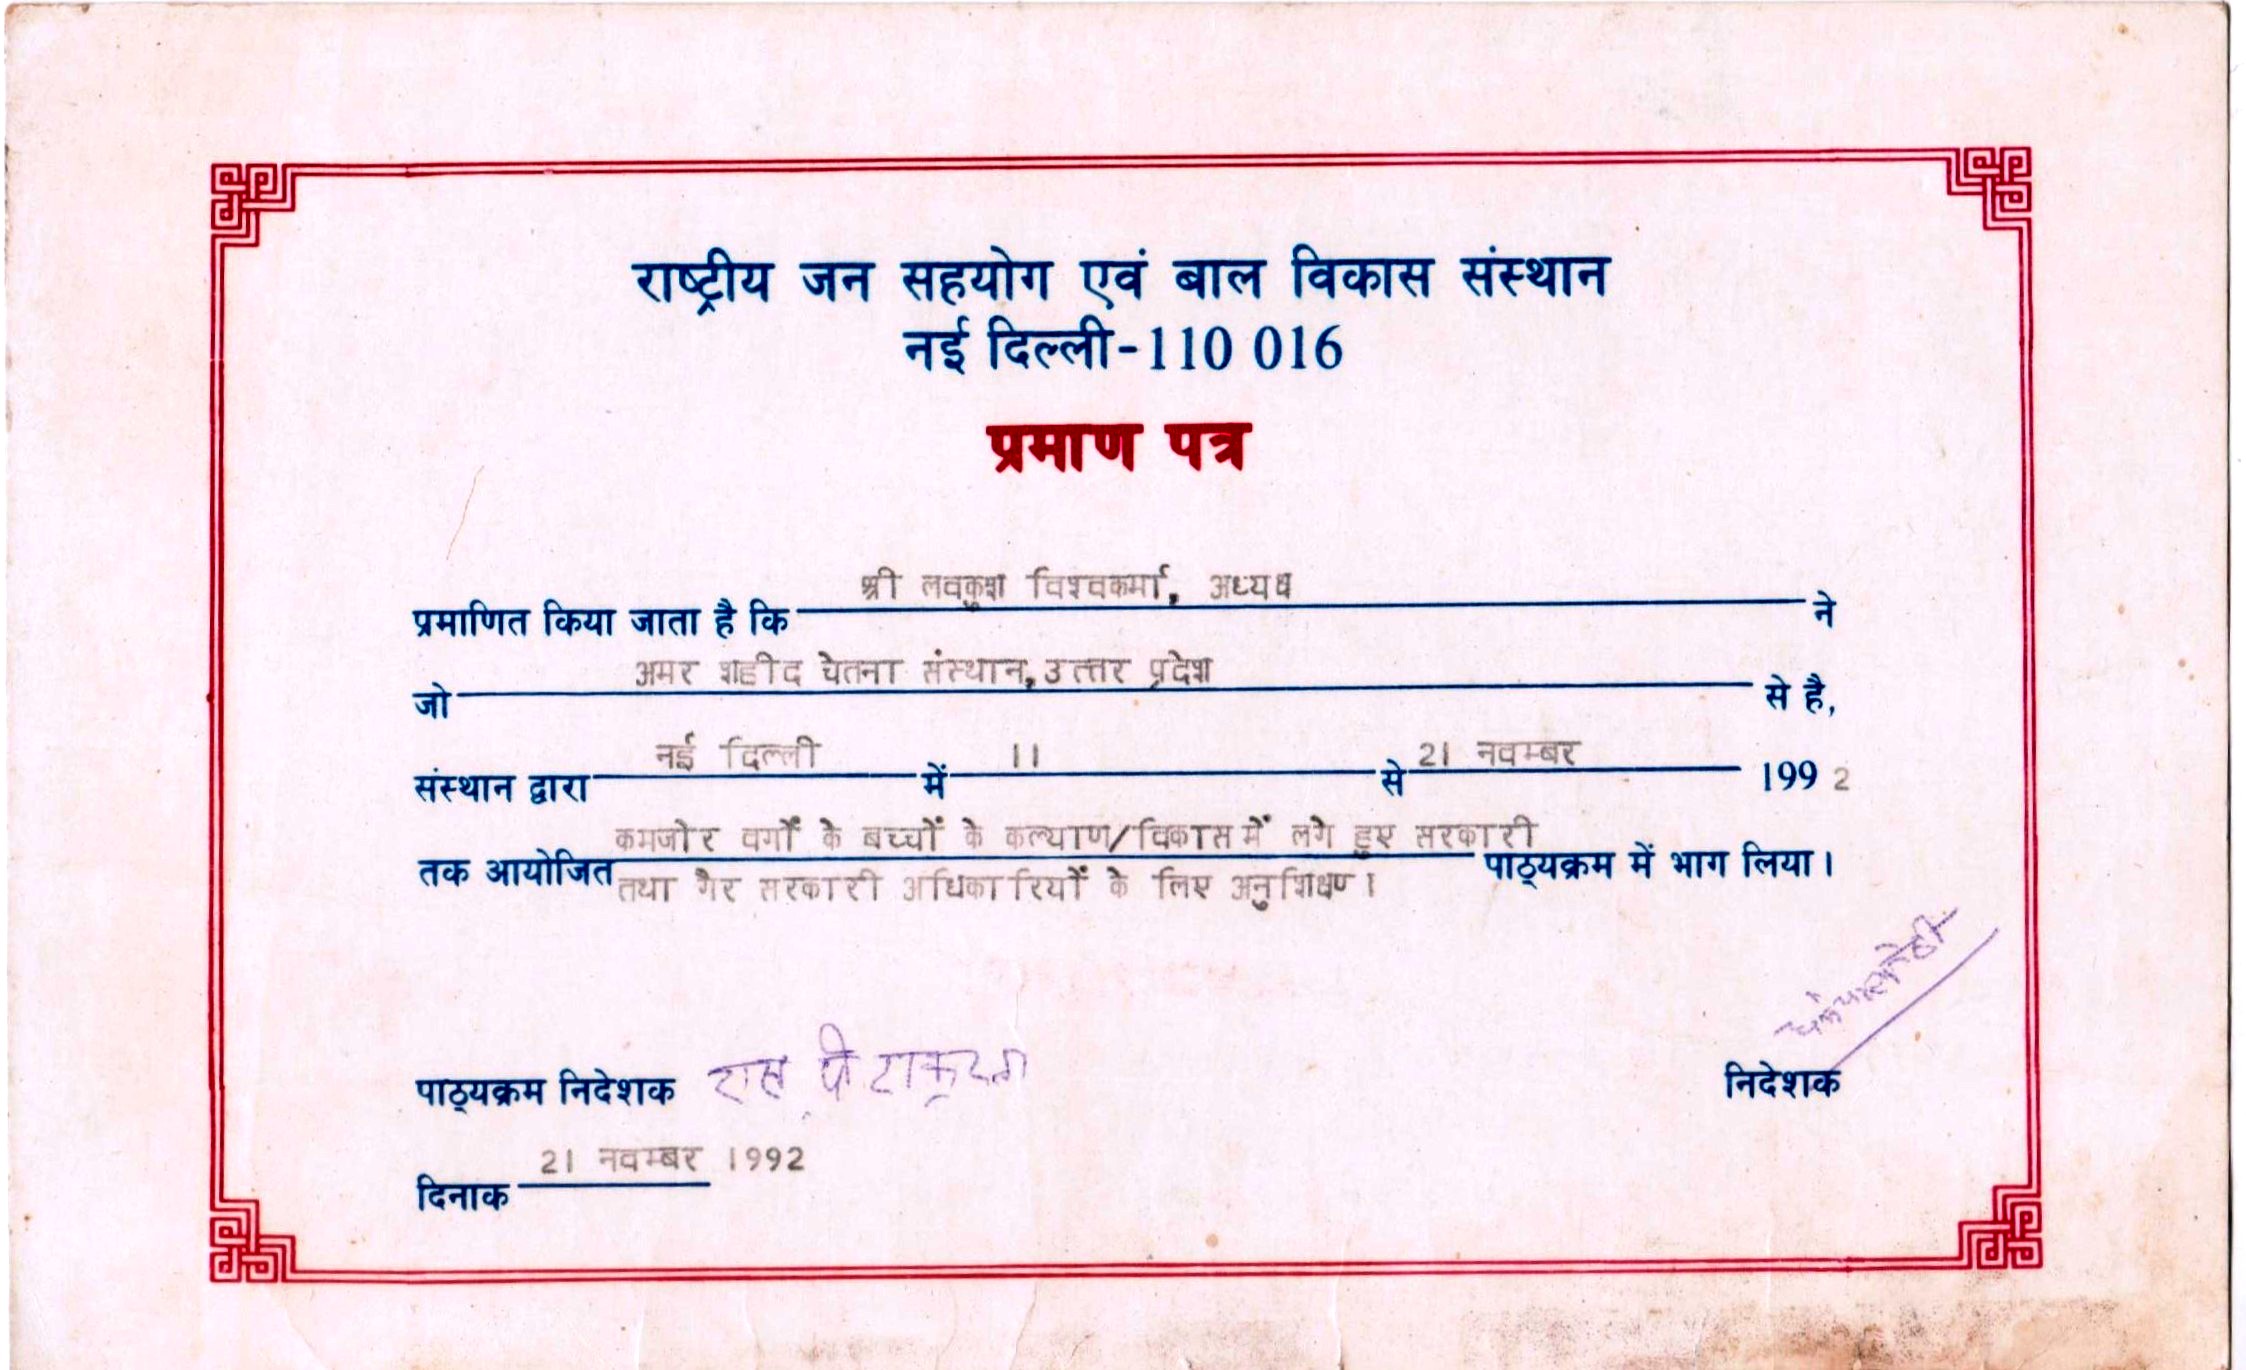 राष्ट्रीय जन सहयोग एवं बाल विकास संस्थान
नई दिल्ली-110 016
प्रमाण पत्र
प्रमाणित किया जाता है कि श्री लवकुश विश्वकर्मा, अध्यक्ष ने
जो अमर शहीद चेतना संस्थान, उत्तर प्रदेश से है,
संस्थान द्वारा नई दिल्ली में 11 से 21 नवम्बर 1992
तक आयोजित कमजोर वर्गों के बच्चों के कल्याण/विकास में लगे हुए सरकारी पाठ्यक्रम में भाग लिया।
तथा गैर सरकारी अधिकारियों के लिए अनुशिक्षण।
पाठ्यक्रम निदेशक एस पी
निदेशक
दिनाक 21 नवम्बर 1992